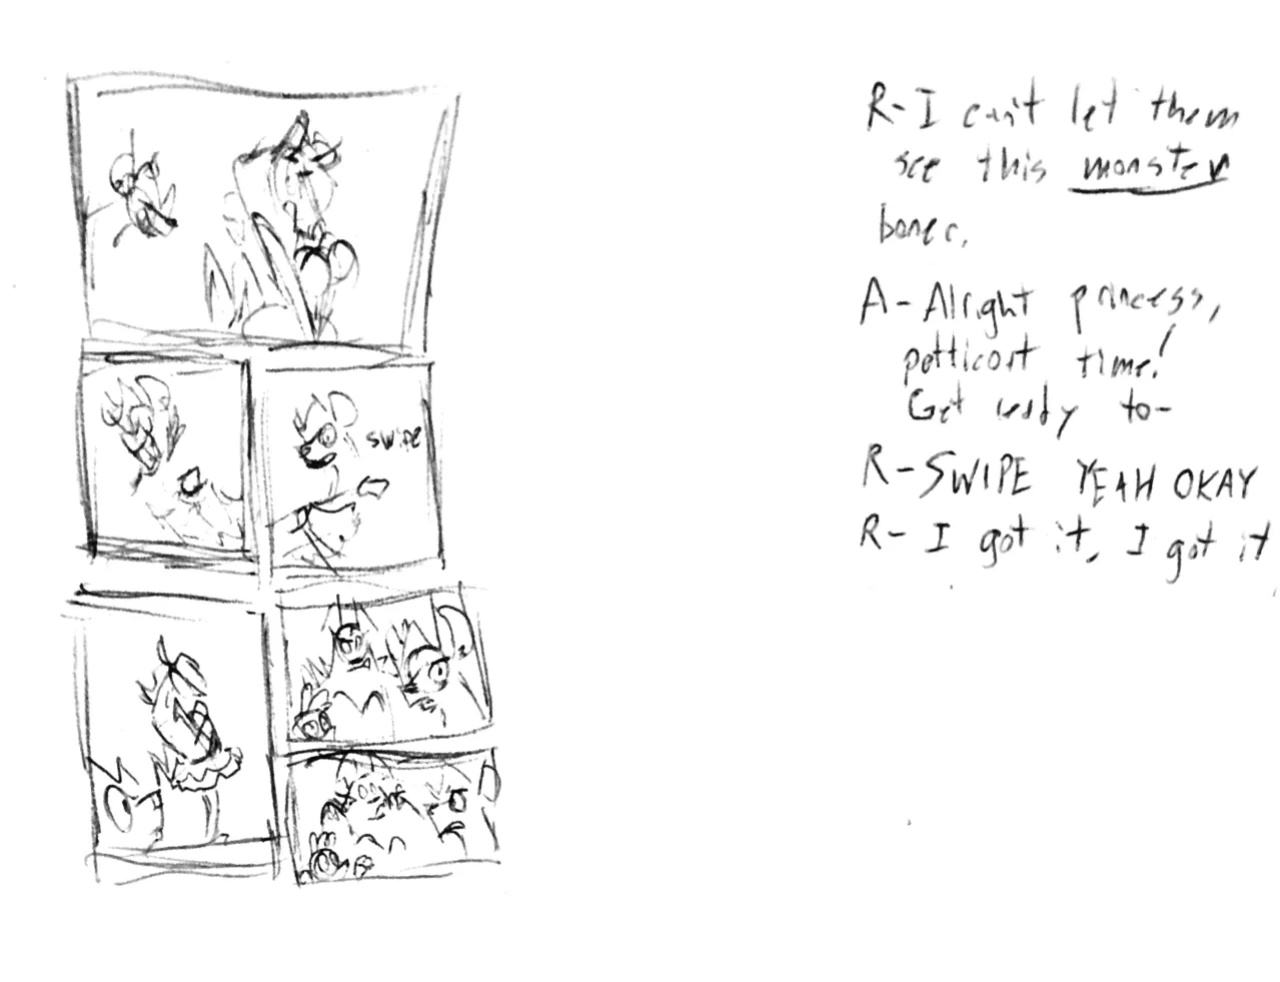 swipe
R-I can't let them
see this monster
boner.
A-Alright princess,
petticoat time!
Get ready to-
R-SWIPE YEAH OKAY
R- I got it, I got it